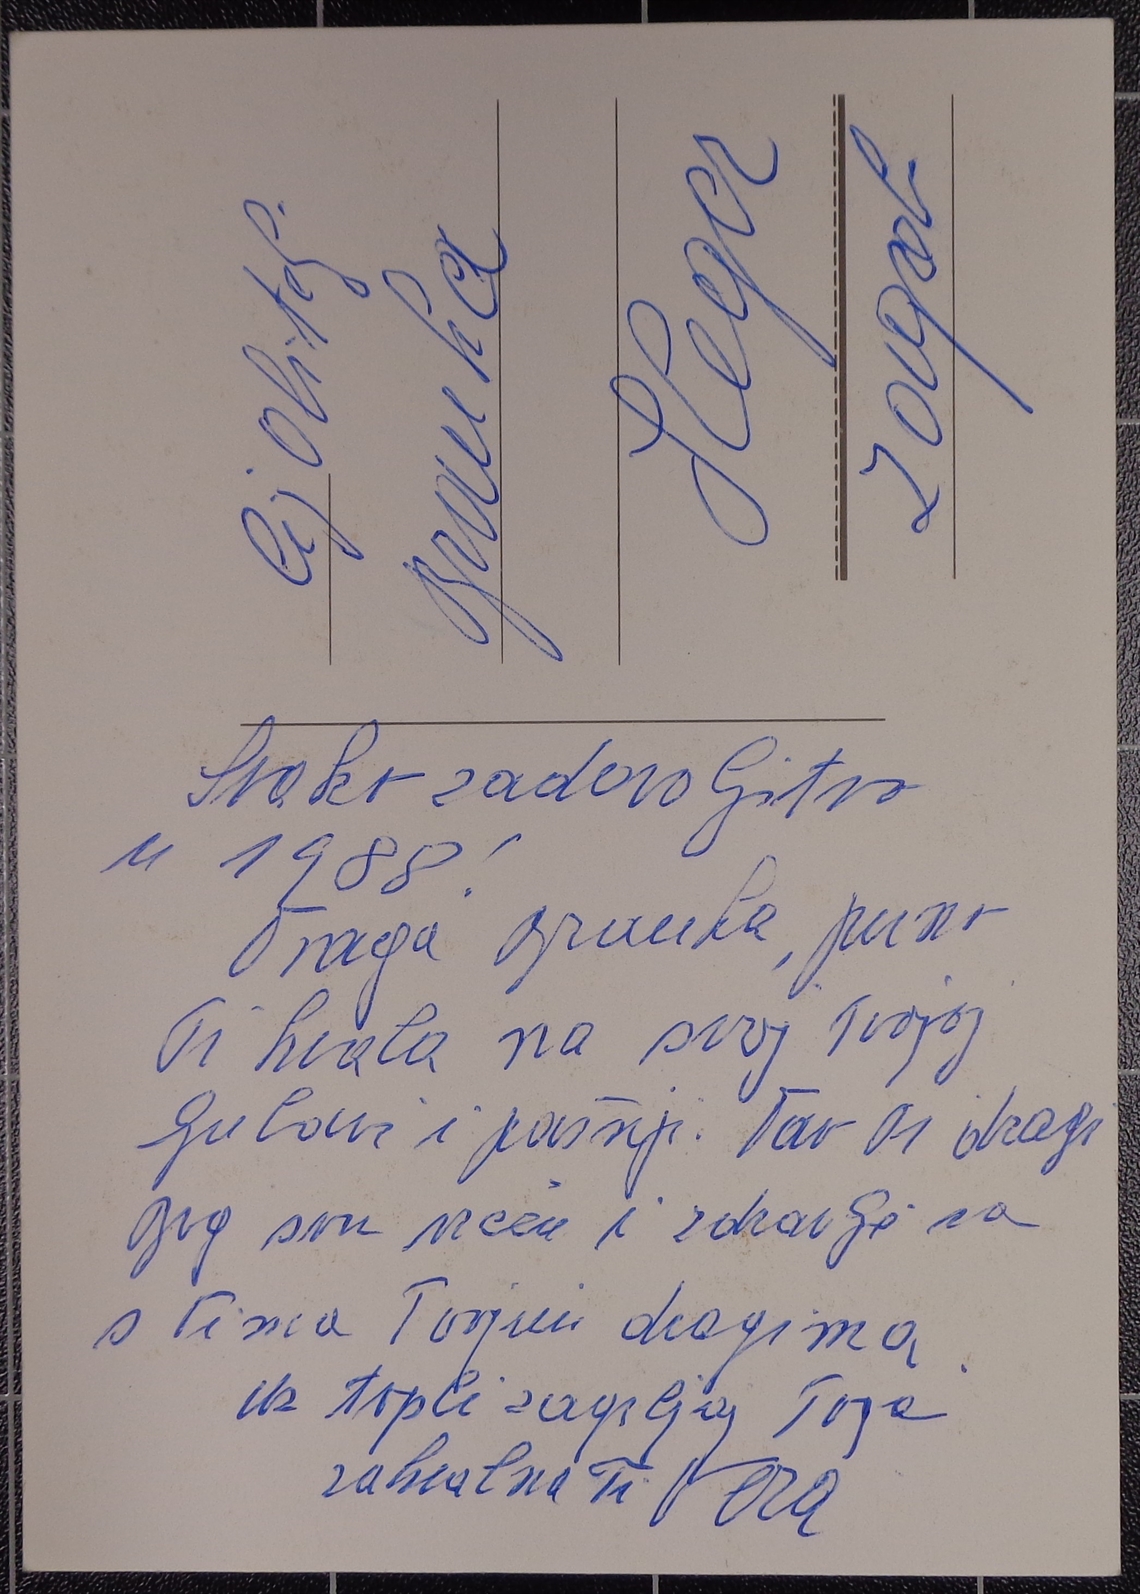 Cij. obitelj
Branka
Hegor
Zagreb
Svako zadovoljstvo
u 1988!
Draga Branka, puno
Ti hvala na svoj Tvojoj
ljubavi i pažnji. Dao Ti dragi
Bog svu sreću i zdravlje sa
s Tima Tvojim dragima.
Uz topli zagrljaj Tvoja
zahvalna Ti Vera